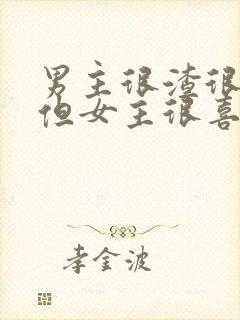 男主很渣很
但女主很喜
李金波